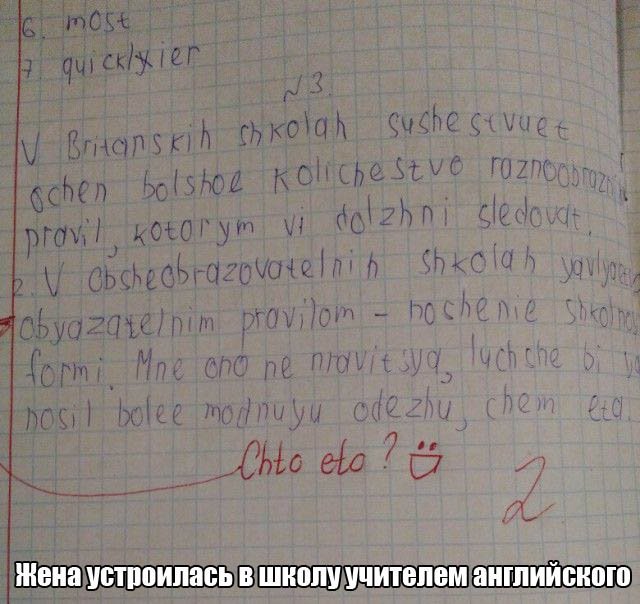 6. most
7 quicklyier
N 3.
V Britanskih shkolah sushestvuet
ochen bolshoe kolichestvo raznoobraznih
pravil, kotorym vi dolzhni sledovat.
2. V obsheobrazovatelnih shkolah yavlyaetsa
obyazatelnim pravilom - noshenie shkolnoy
formi. Mne ono ne nravitsya, luchshe bi ya
nosil bolee modnuyu odezhu, chem eta.
Chto eto?
2
Жена устроилась в школу учителем английского